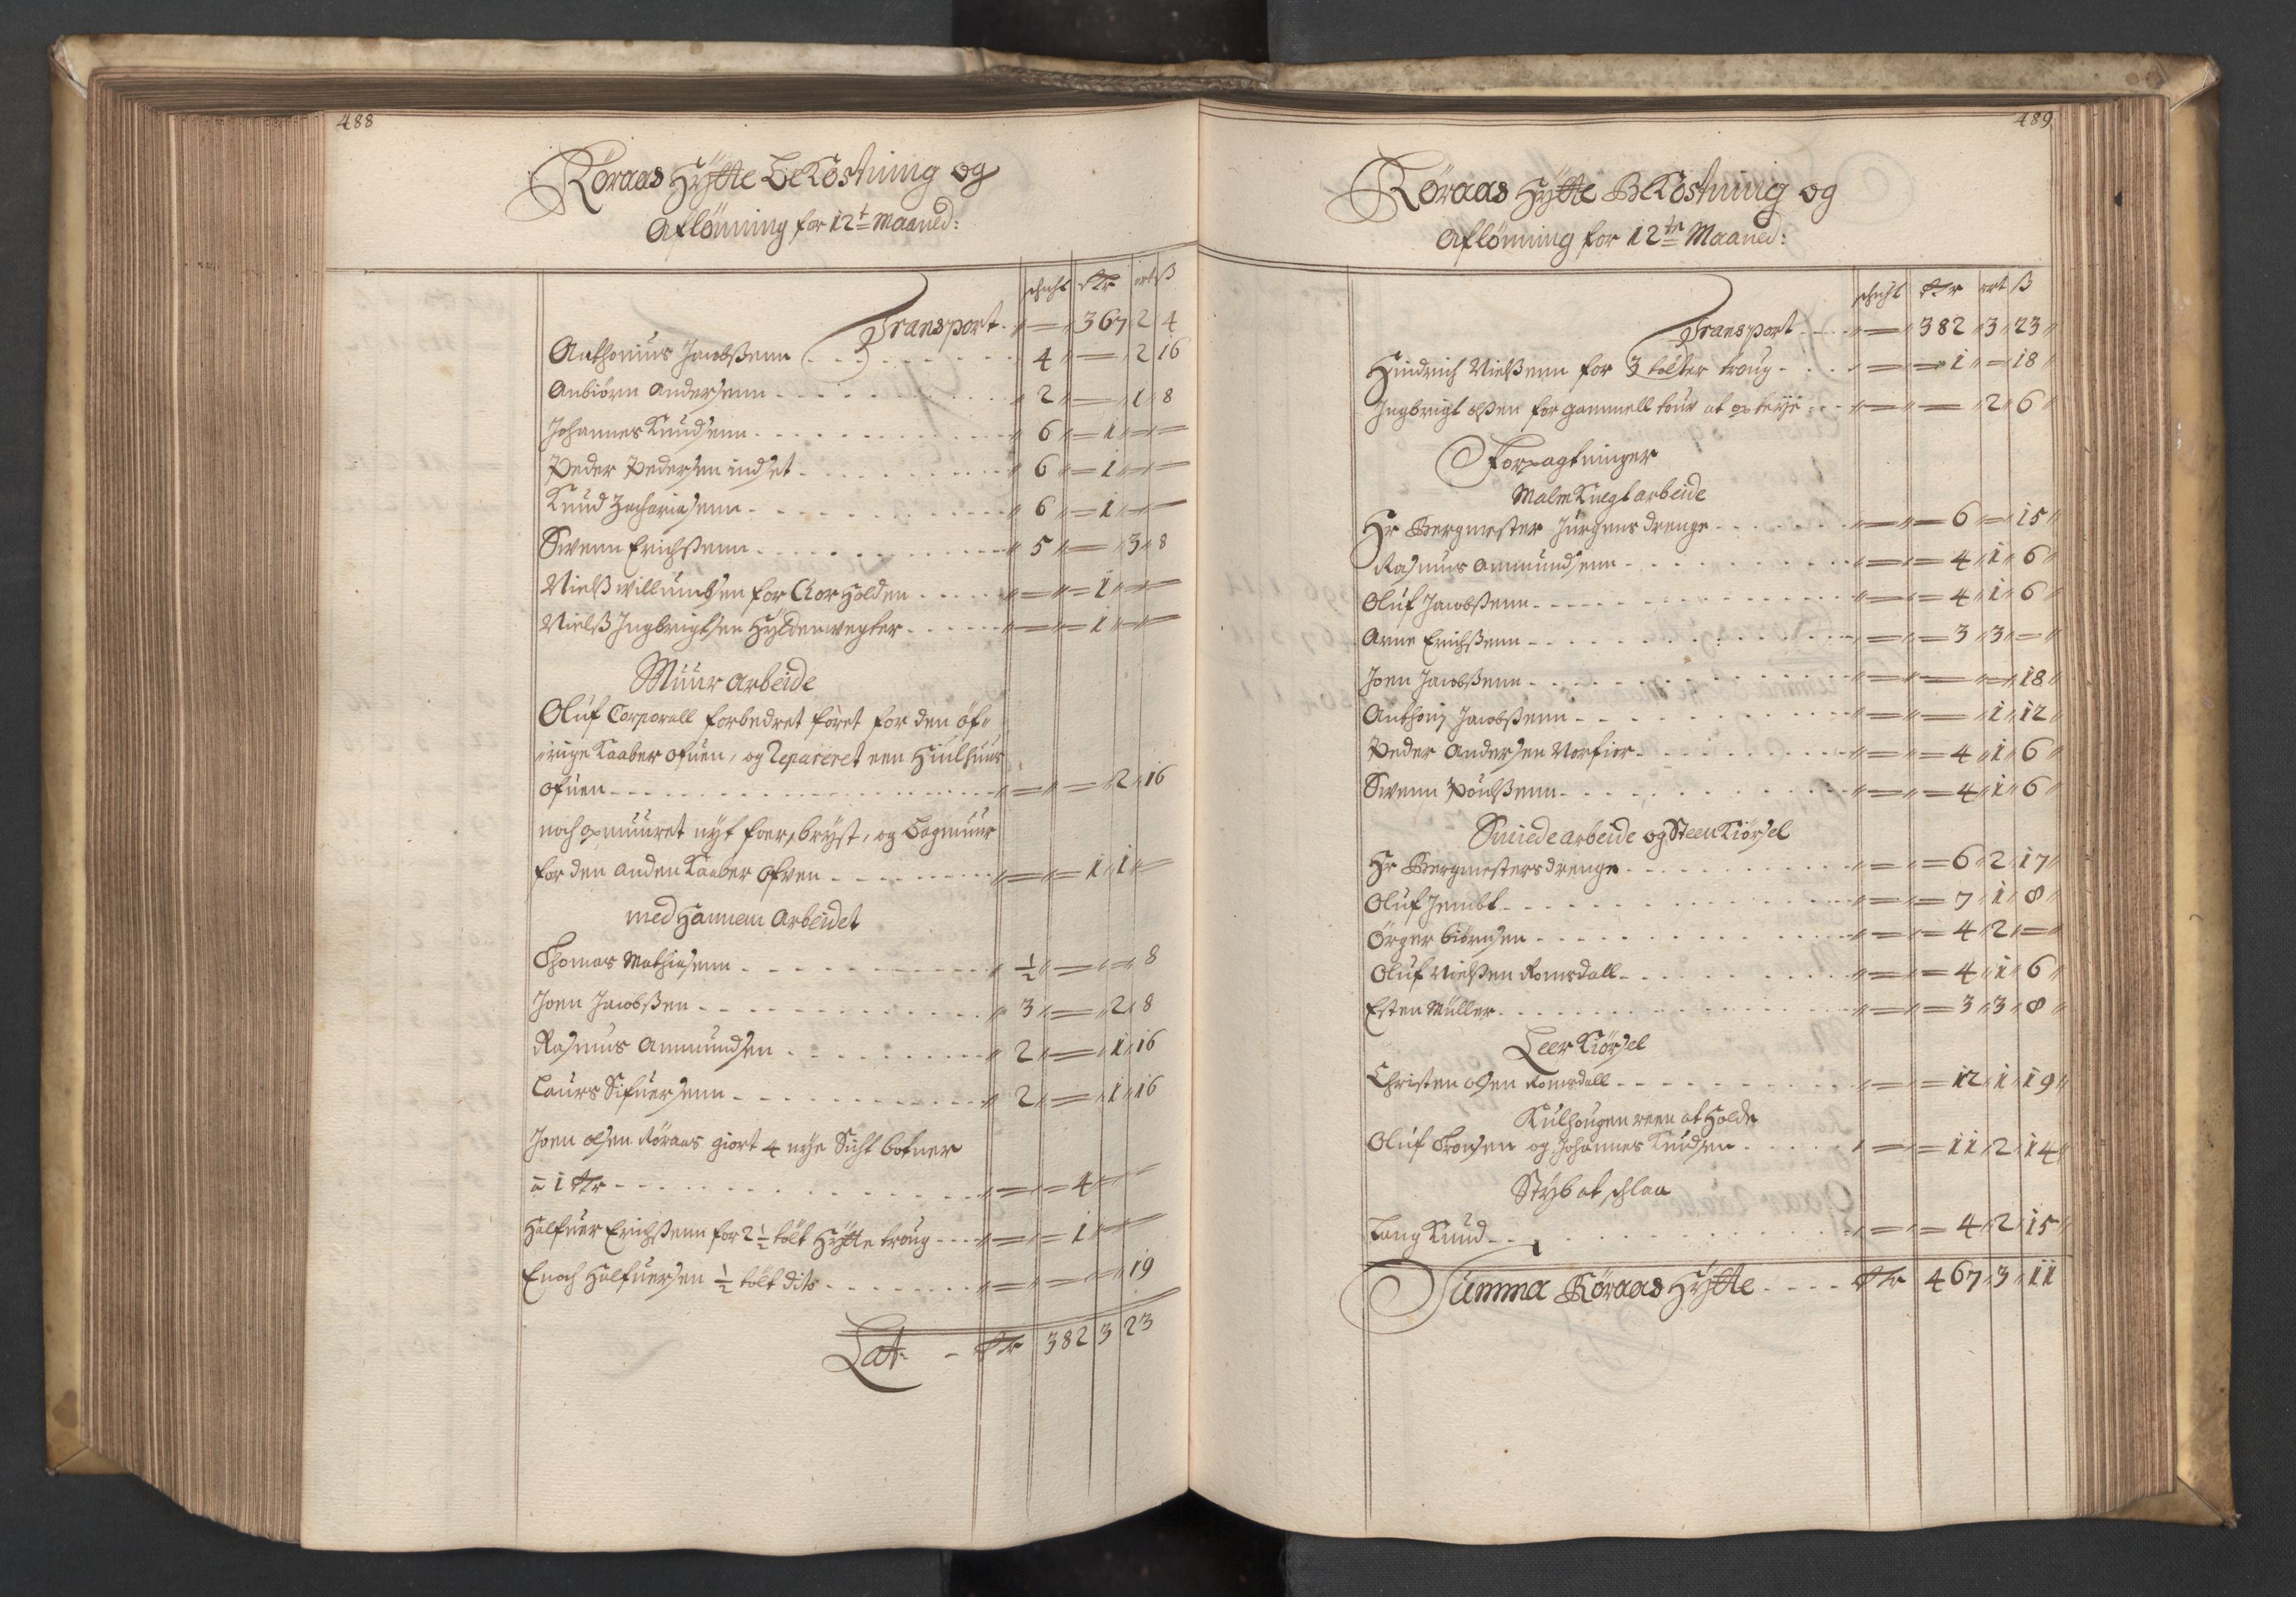 488
Röraas Hÿtte BeKostning og
Aflönning for 12t Maaned:
schicht Rdr ort ß
Transport - 367 2 4
Anthonius Jacobßenn 4 - 2 16
Anbiörn Andersenn 2 - 1 8
Johannes Knudsenn 6 1 -
Peder Pedersen indset 6 1 -
Knud Zachariasenn 6 1 -
Swenn Erichßenn 5 - 3 8
Nielß willumbsen for Clor Holden - 1 -
Nielß Ingbrigtsen Hÿldenwegter - 1 -
Muur Arbeide
Oluf Corporall forbedret foret for den öf„
„rige Kaaber ofuen, og Repareret een Hiulhuus
ofuen - - 2 16
noch opmuuret nÿt foer, brÿst, og Bagmuur
for den anden Kaaber ofven - 1 1 -
med Hannem Arbeidet
Thomas Mathiasenn ½ - - 8
Joen Jacobßen 3 - 2 8
Rasmus Ammundsen 2 - 1 16
Laurs Sifuersenn 2 - 1 16
Joen olsen Röraas giort 4 nÿe Sicht botner
a 1 Rdr - 4 -
Halfuer Erichßenn for 2½ tölt Hÿtte troug - 1 -
Enoch Halfuersen ½ tölt dito - - - 19
Lat: - Rdr 382 3 23
489
Röraas Hÿtte BeKostning og
Aflönning for 12te Maaned:
schicht Rdr ort ß
Transport - 382 3 23
Hindrich Nielßenn for 3 tölter troug - 1 - 18
Ingbrigt olßen for gammell touv at op terje - - 2 6
Forpagtninger
Malm Knegt arbeide
Hr Bergmester Jürgens drenge - 6 - 15
Rasmus Ammundsenn - 4 1 6
Oluf Jacobßenn - 4 1 6
Arne Erichßenn - 3 3 -
Joen Jacobßenn - - - 18
Anthonj Jacobßenn - - 1 12
Peder Andersen Norfior - 4 1 6
Swenn Poulßenn - 4 1 6
Smiede arbeide og Steen Kiörsel
Hr Bergmesters drenge - 6 2 17
Oluf Jembt - 7 1 8
Örger biörnsen - 4 2 -
Oluf Nielßen Romsdall - 4 1 6
Esten Müller - 3 3 8
Leer Kiörsel
Christen olsen Romsdall - 12 1 19
Kulhougen reen at Holde
Oluf Tronsen og Johannes Knudsen - 11 2 14
Stÿb at schlaa
Lang Knud - 4 2 15
Summa Röraas Hÿtte Rdr 467 3 11